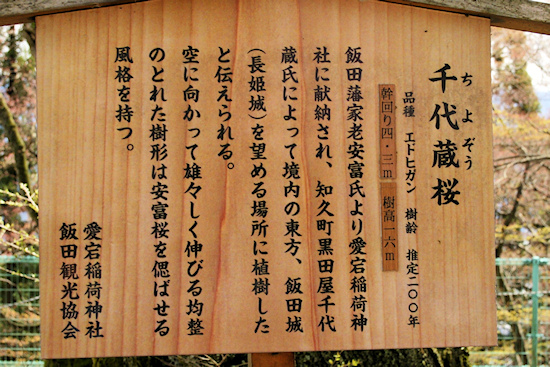 千代蔵桜
ちよぞう
品種 エドヒガン 樹齢 推定二〇〇年
幹回り四・三m 樹高一六m
飯田藩家老安富氏より愛宕稲荷神
社に献納され、知久町黒田屋千代
蔵氏によって境内の東方、飯田城
(長姫城)を望める場所に植樹した
と伝えられる。
空に向かって雄々しく伸びる均整
のとれた樹形は安富桜を偲ばせる
風格を持つ。
愛宕稲荷神社
飯田観光協会